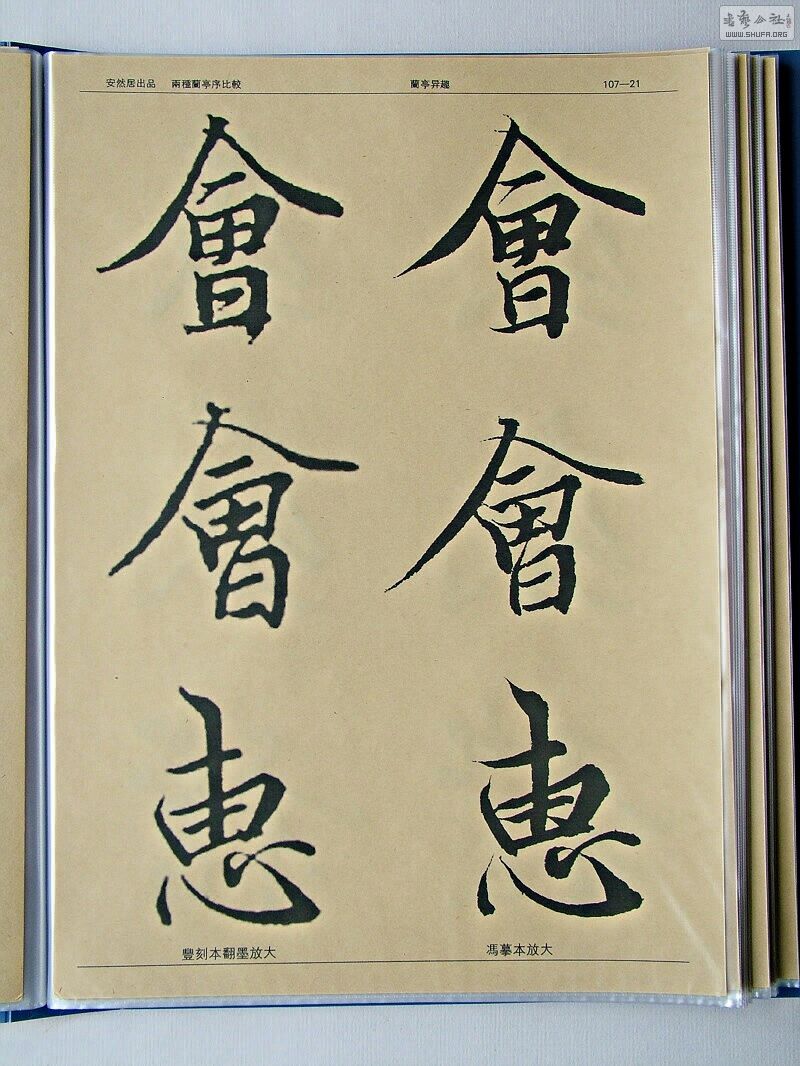 書藝公社
WWW.SHUFA.ORG
安然居出品 兩種蘭亭序比較 蘭亭异趣 107—21
會 會
會 會
惠 惠
豐刻本翻墨放大 馮摹本放大